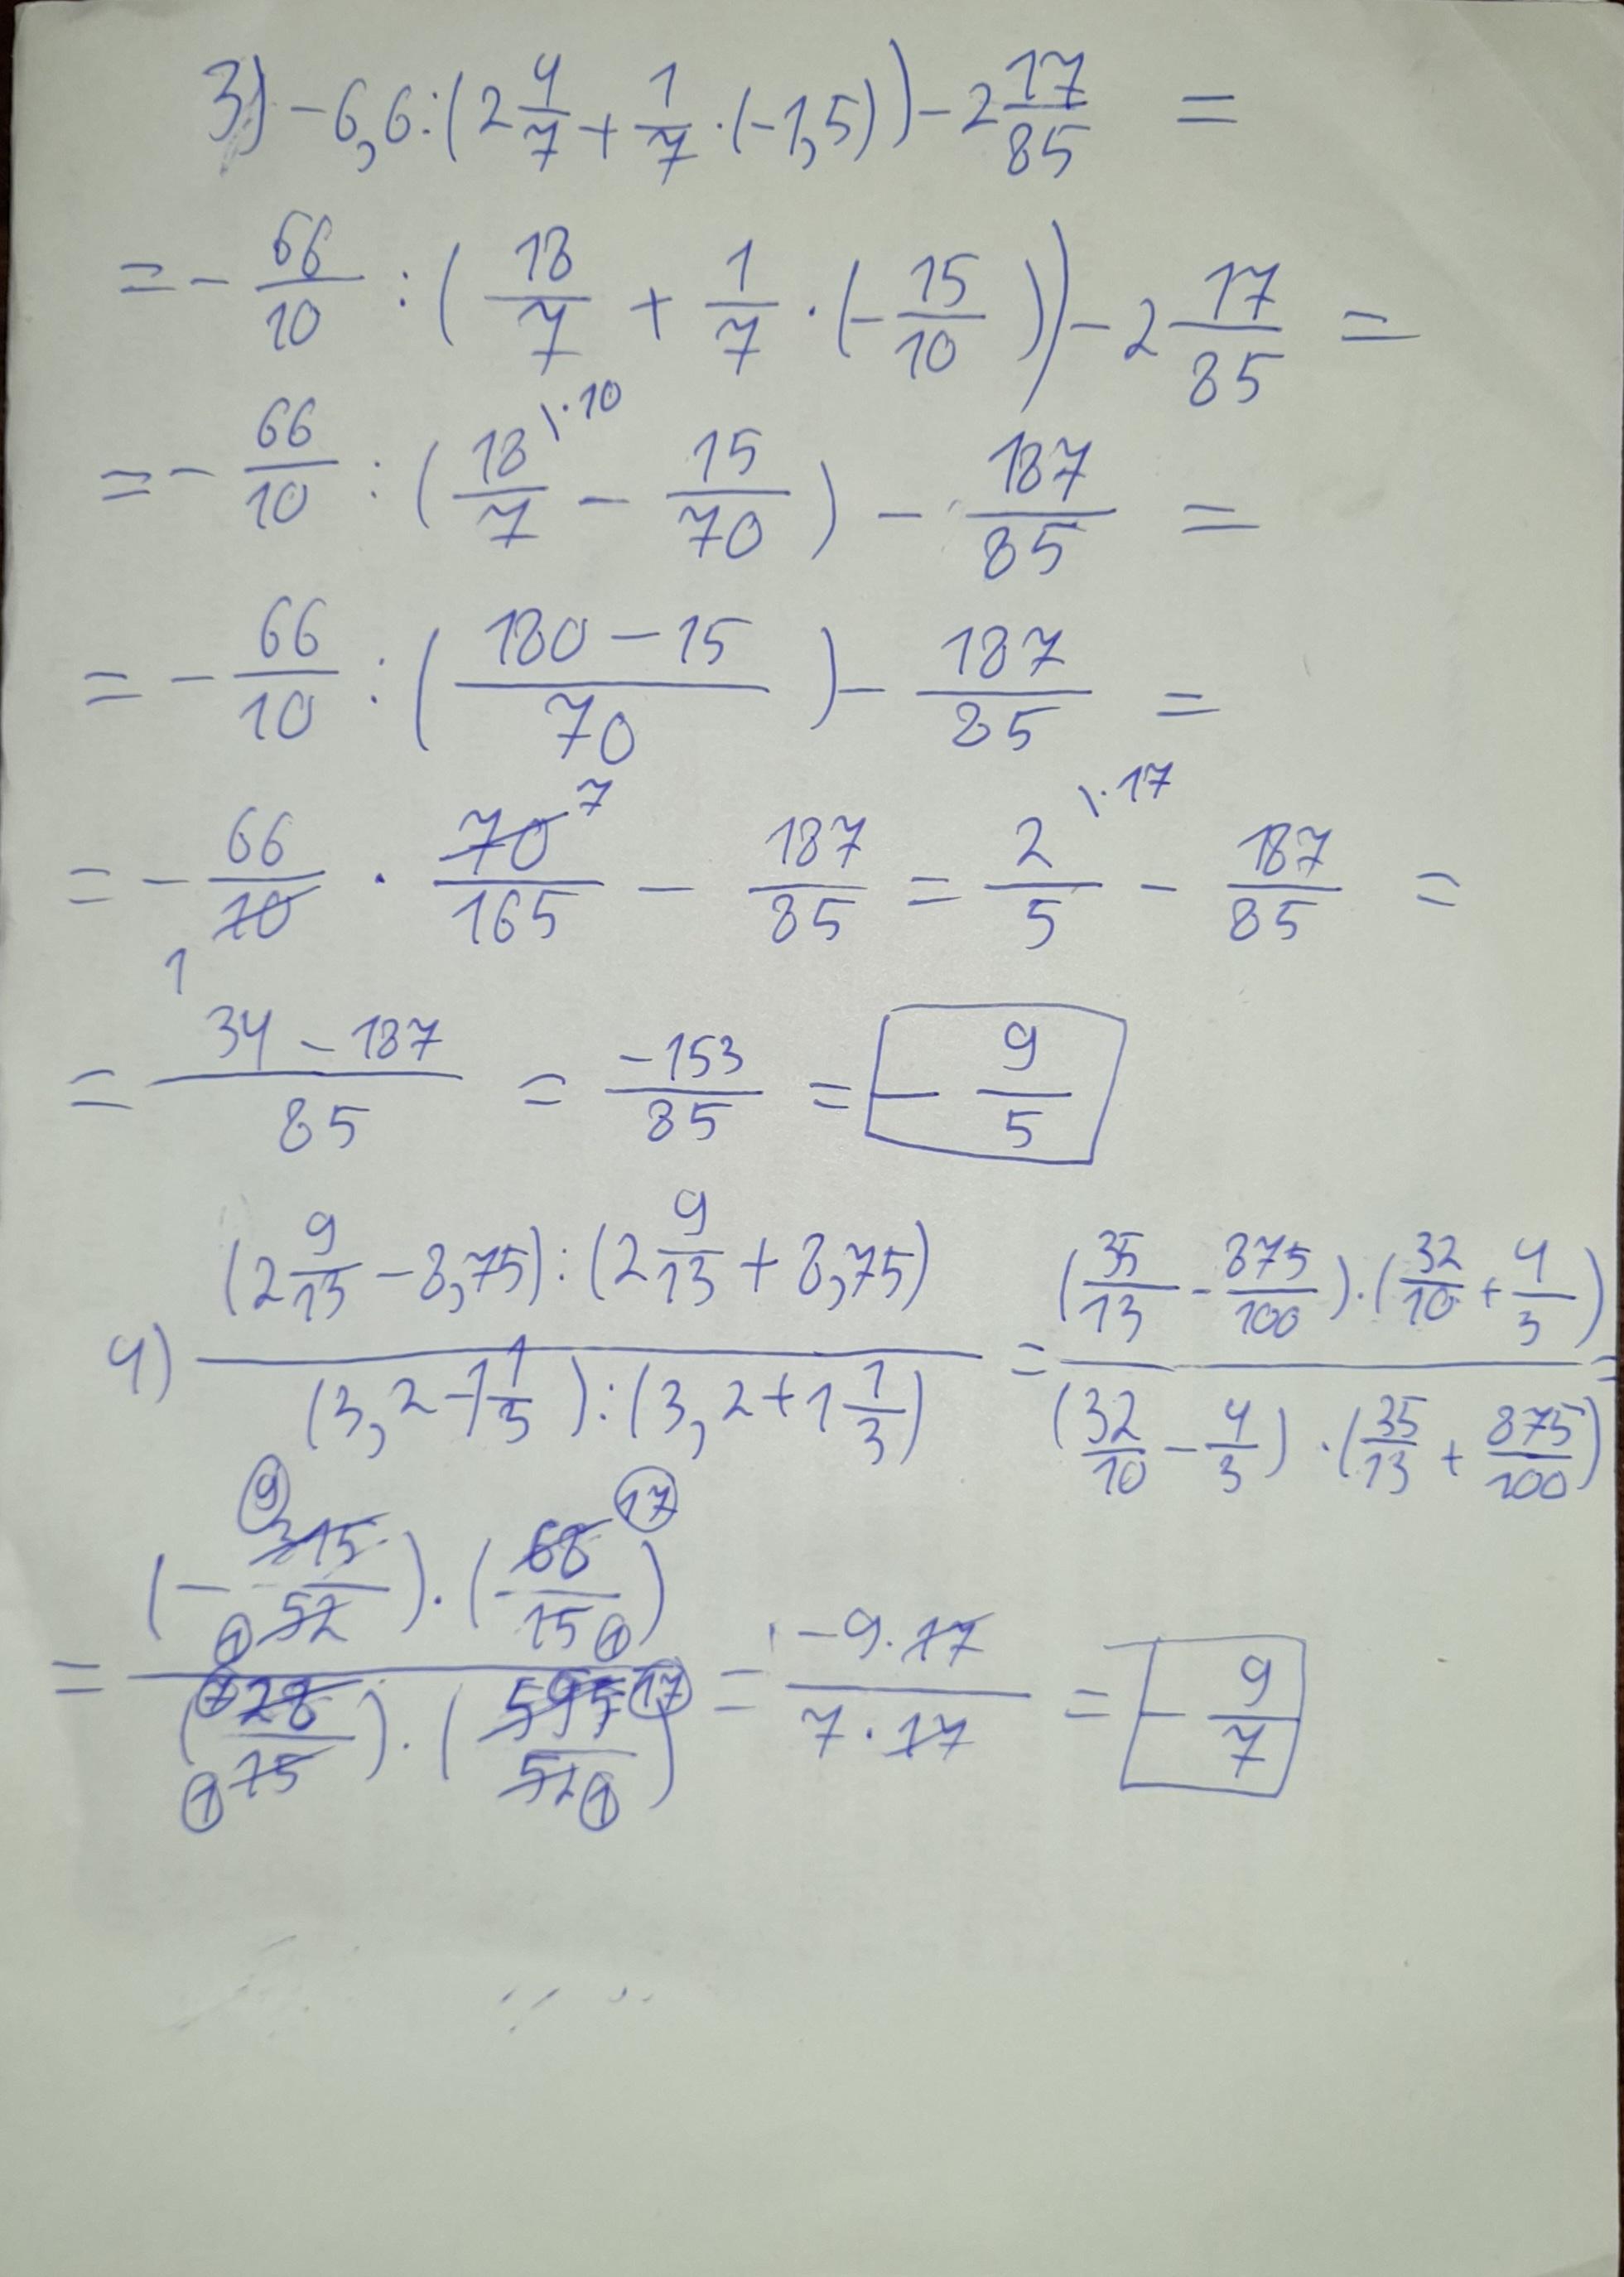 3) -6,6:(2 4/7 + 1/7 · (-1,5)) - 2 17/85 =
= - 66/10 : (18/7 + 1/7 · (- 15/10)) - 2 17/85 =
= - 66/10 : (18/7 \·10 - 15/70) - 187/85 =
= - 66/10 : ((180 - 15)/70) - 187/85 =
= - 66/10 1 · 70 7/165 - 187/85 = 2/5 \·17 - 187/85 =
= (34 - 187)/85 = -153/85 = - 9/5
4) ((2 9/13 - 8,75) : (2 9/13 + 8,75))/((3,2 - 1 1/3) : (3,2 + 1 1/3)) = ((35/13 - 875/100) · (32/10 + 4/3))/((32/10 - 4/3) · (35/13 + 875/100)) =
= ((- 315 9/52 1) · (68 17/15 1))/((28 7/15 1) · (595 17/52 1)) = (-9 · 17)/(7 · 17) = - 9/7